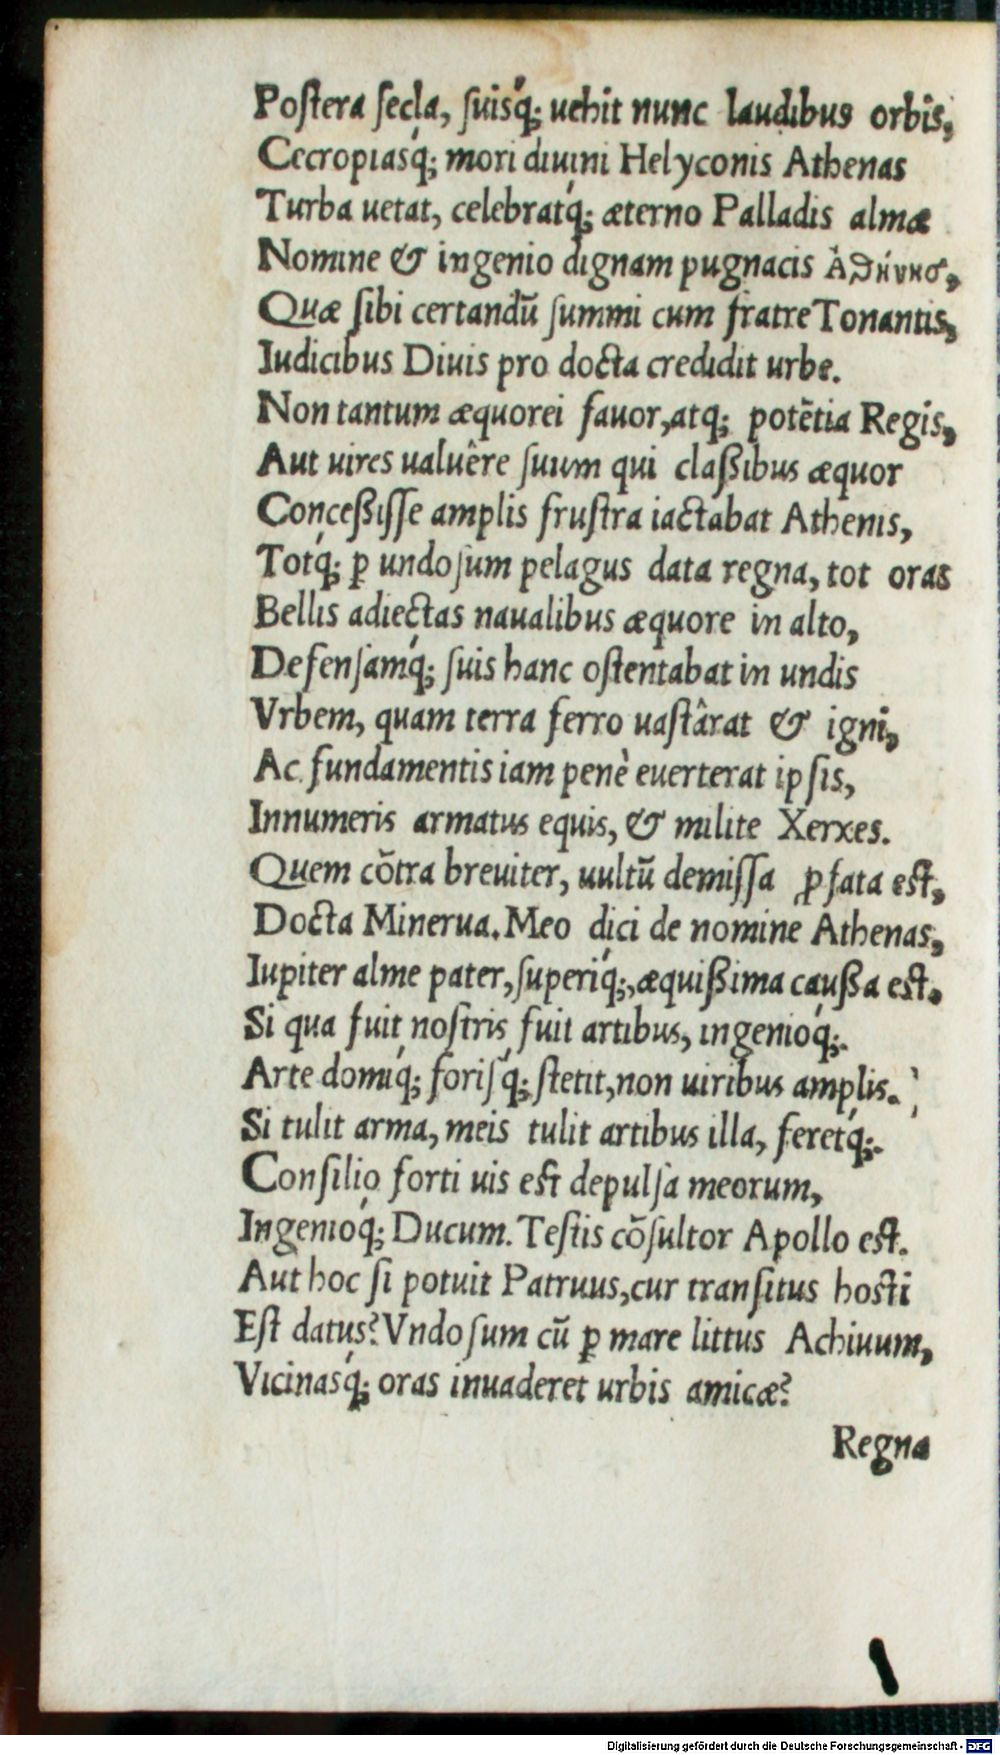 Poſtera ſecla, ſuisq́; uehit nunc laudibus orbis,
Cecropiasq́; mori diuini Helyconis Athenas
Turba uetat, celebratq́; æterno Palladis almæ
Nomine & ingenio dignam pugnacis Ἀϑήνησ,
Quæ ſibi certandū ſummi cum fratre Tonantis,
Iudicibus Diuis pro docta credidit urbe.
Non tantum æquorei fauor, atq; potētia Regis,
Aut uires ualuêre ſuum qui claßibus æquor
Conceßiſſe amplis fruſtra iactabat Athenis,
Totq́; ꝑ undoſum pelagus data regna, tot oras
Bellis adiectas naualibus æquore in alto,
Defenſamq́; ſuis hanc oſtentabat in undis
Vrbem, quam terra ferro uaſtârat & igni,
Ac fundamentis iam penè euerterat ipſis,
Innumeris armatus equis, & milite Xerxes.
Quem cōtra breuiter, uultū demiſſa ꝓfata eſt,
Docta Minerua. Meo dici de nomine Athenas,
Iupiter alme pater, ſuperiq́;, æquißima caußa eſt.
Si qua fuit noſtris fuit artibus, ingenioq́;.
Arte domiq́; foriſq́; ſtetit, non uiribus amplis.
Si tulit arma, meis tulit artibus illa, feretq́;.
Conſilio forti uis eſt depulſa meorum,
Ingenioq́; Ducum. Teſtis cōſultor Apollo eſt.
Aut hoc ſi potuit Patruus, cur tranſitus hoſti
Eſt datus? Vndoſum cū ꝑ mare littus Achiuum,
Vicinasq́; oras inuaderet urbis amicæ?
Regna
Digitalisierung gefördert durch die Deutsche Forschungsgemeinschaft - DFG